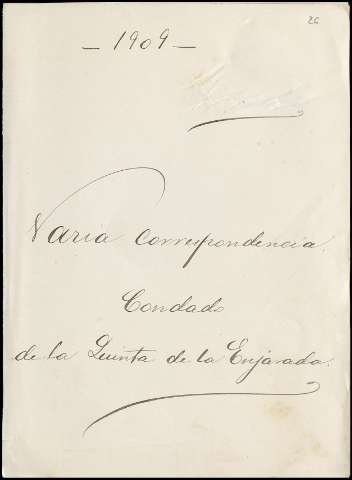 26
— 1909 —
Varia correspondencia.
Condado
de la Quinta de la Enjarada.